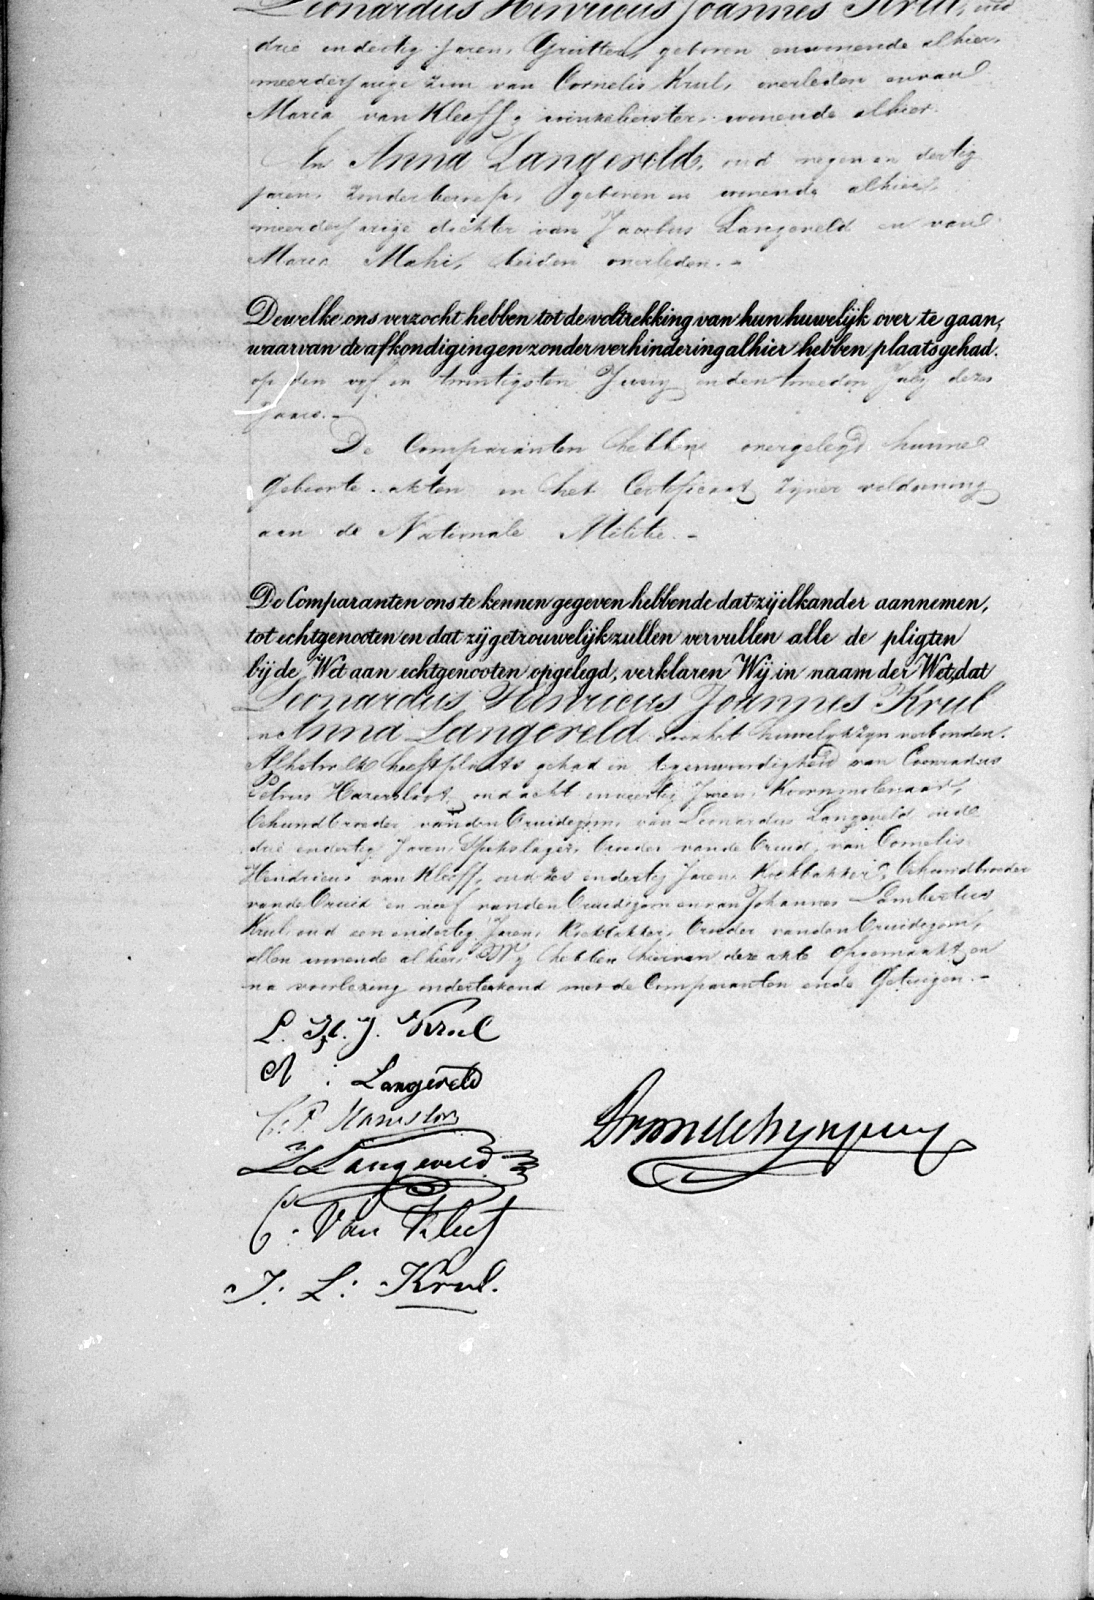 Leonardus Henricus Joannes Krul, oud
drie en dertig Jaren, geboren en wonende alhier,
meerderjarige Zoon van Cornelis Krul, overleden en van
Maria van Kleeff, winkelierster, wonende alhier.
En Anna Langeveld, oud negen en dertig
jaren, zonder beroep, geboren en wonende alhier,
meerderjarige dochter van Jacobus Langeveld en van
Maria Mahi, beiden overleden. -
Dewelke ons verzocht hebben tot de voltrekking van hun huwelijk over te gaan,
waarvan de afkondigingen zonder verhindering alhier hebben plaats gehad.
op den vyf en twintigsten Juny en den tweeden July dezes
Jaars. -
De Comparanten hebben overgelegd hunne
Geboorte akten en het Certificaat zijner voldoening
aan de Nationale Militie. -
De Comparanten ons te kennen gegeven hebbende dat zij elkander aannemen,
tot echtgenooten en dat zij getrouwelijk zullen vervullen alle de pligten
bij de Wet aan echtgenooten opgelegd, verklaren Wij in naam der Wet, dat
Leonardus Henricus Joannes Krul
en Anna Langeveld door het huwelyk zyn verbonden.
Alhetwelk heeft plaats gehad in tegenwoordigheid van Coenradus
Petrus oud acht en veertig Jaren, Koornmolenaar,
Behuwdbroeder van den Bruidegom, van Leonardus Langeveld oud
drie en dertig Jaren, Spekslager, broeder van de Bruid, van Cornelis
Hendricus van Kleeff, oud zes en dertig Jaren, Kookbakker, Behuwdbroeder
van de Bruid en neef van den Bruidegom en van Johannes Lambertus
Krul oud een en dertig Jaren, Koekbakker, broeder van den Bruidegom,
allen wonende alhier. Wy hebben hiervan deze akte opgemaakt, en
na voorlezing onderteekend met de Comparanten en de Getuigen. -
L. H. J. Krul
A : Langeveld
C. P.
L Langeveld
C. Van Kleef
J. L. Krul.